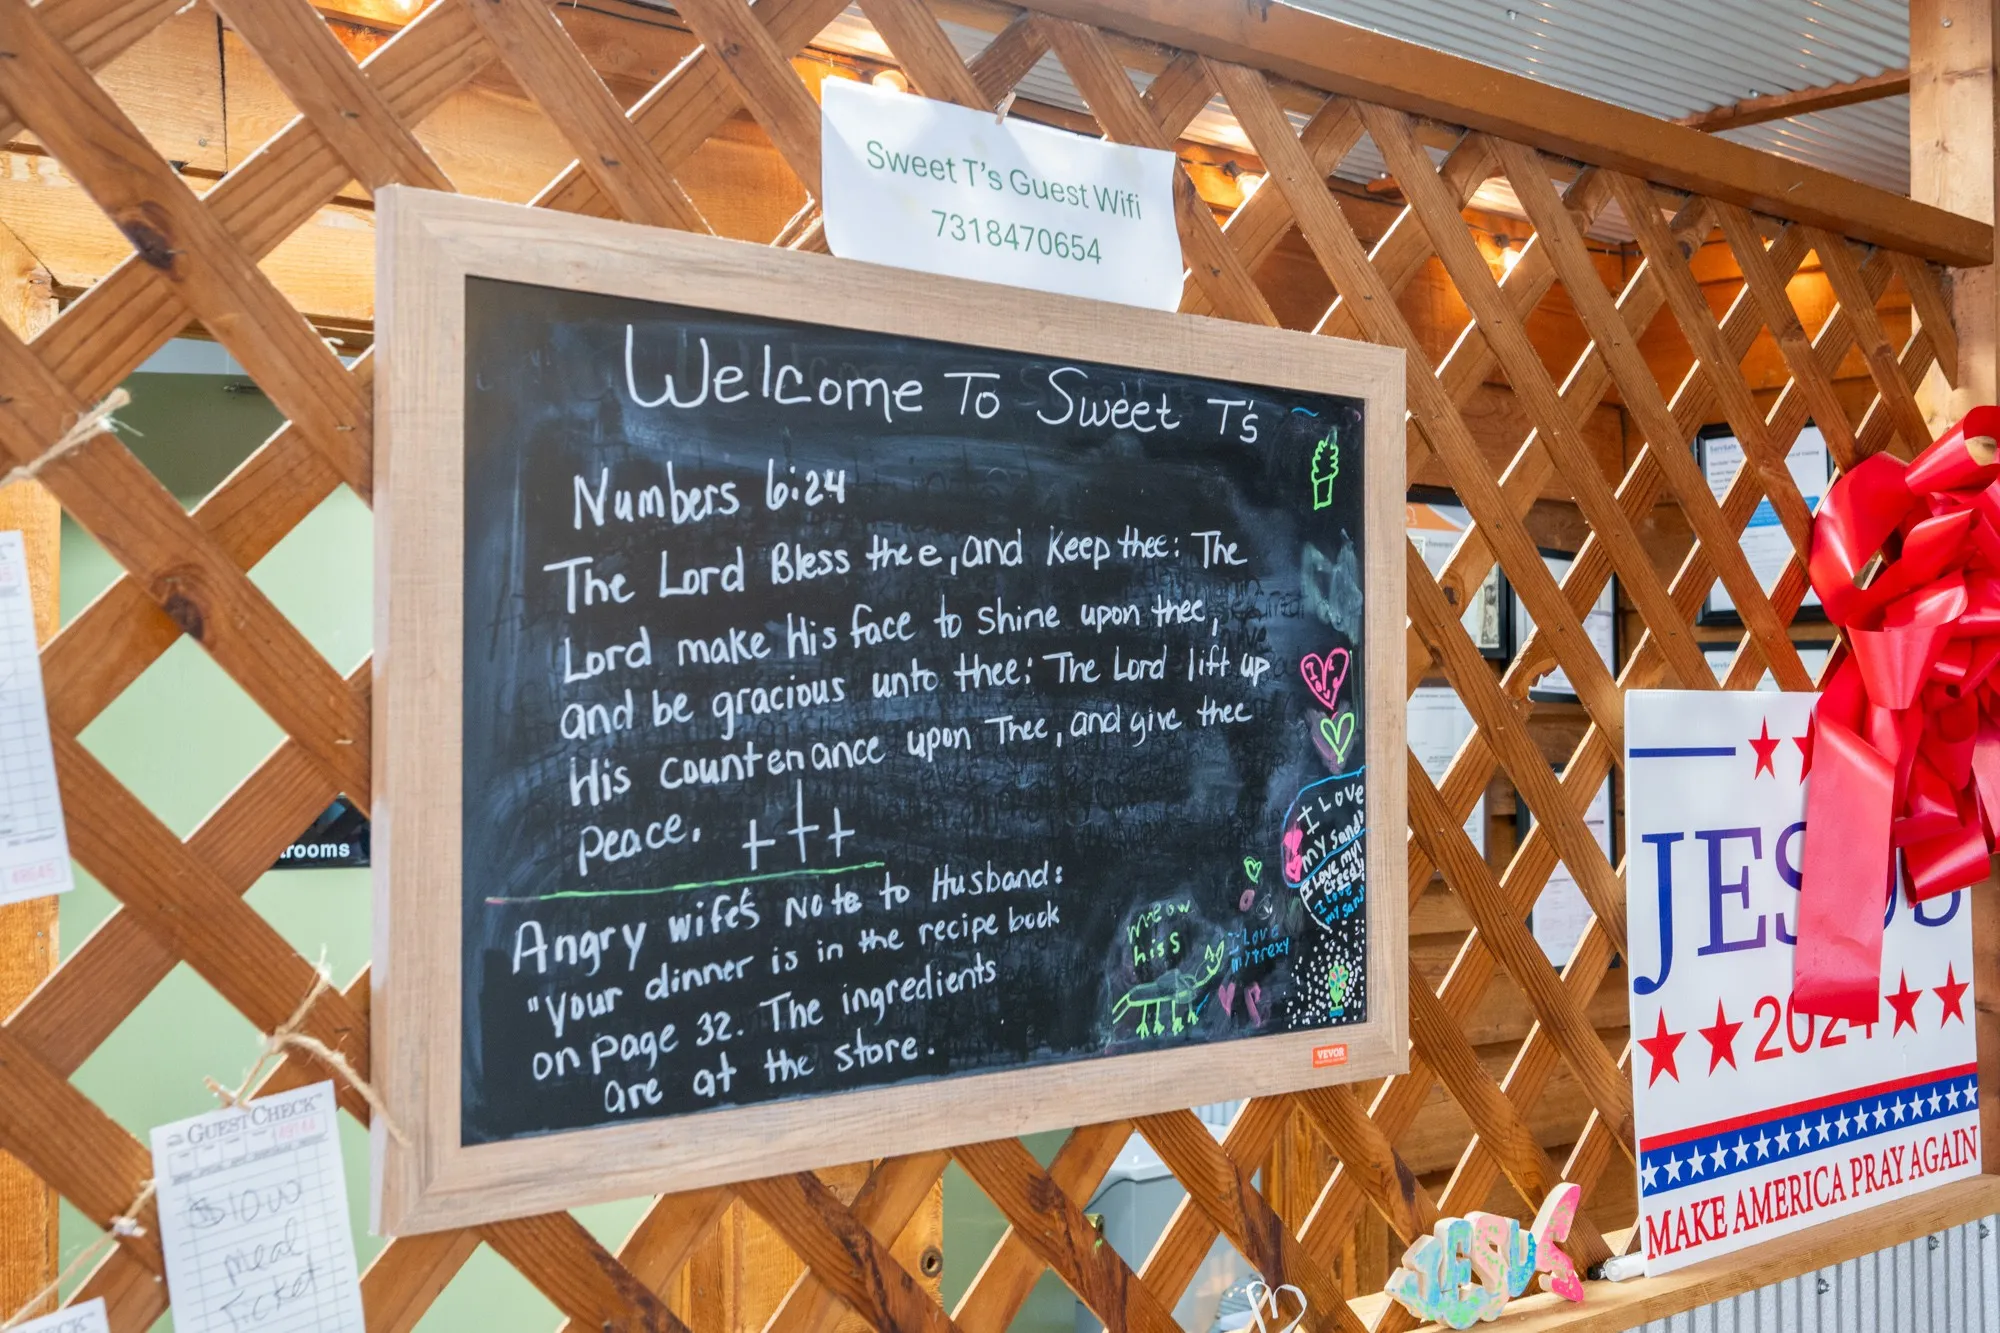 Sweet T's Guest Wifi
7318470654
Welcome To Sweet T's
Numbers 6:24
The Lord Bless thee, and keep thee: The
Lord make His face to shine upon thee,
and be gracious unto thee: The Lord lift up
His countenance upon Thee, and give thee
peace.
Angry wife's Note to Husband:
"Your dinner is in the recipe book
on page 32. The ingredients
are at the store.
I LOVE
I LOVE
my
meow
hiss
I Love
my trexy
VEVOR
rooms
GUEST CHECK
$10.00
meal
Ticket
JESUS
2024
MAKE AMERICA PRAY AGAIN
JESUS